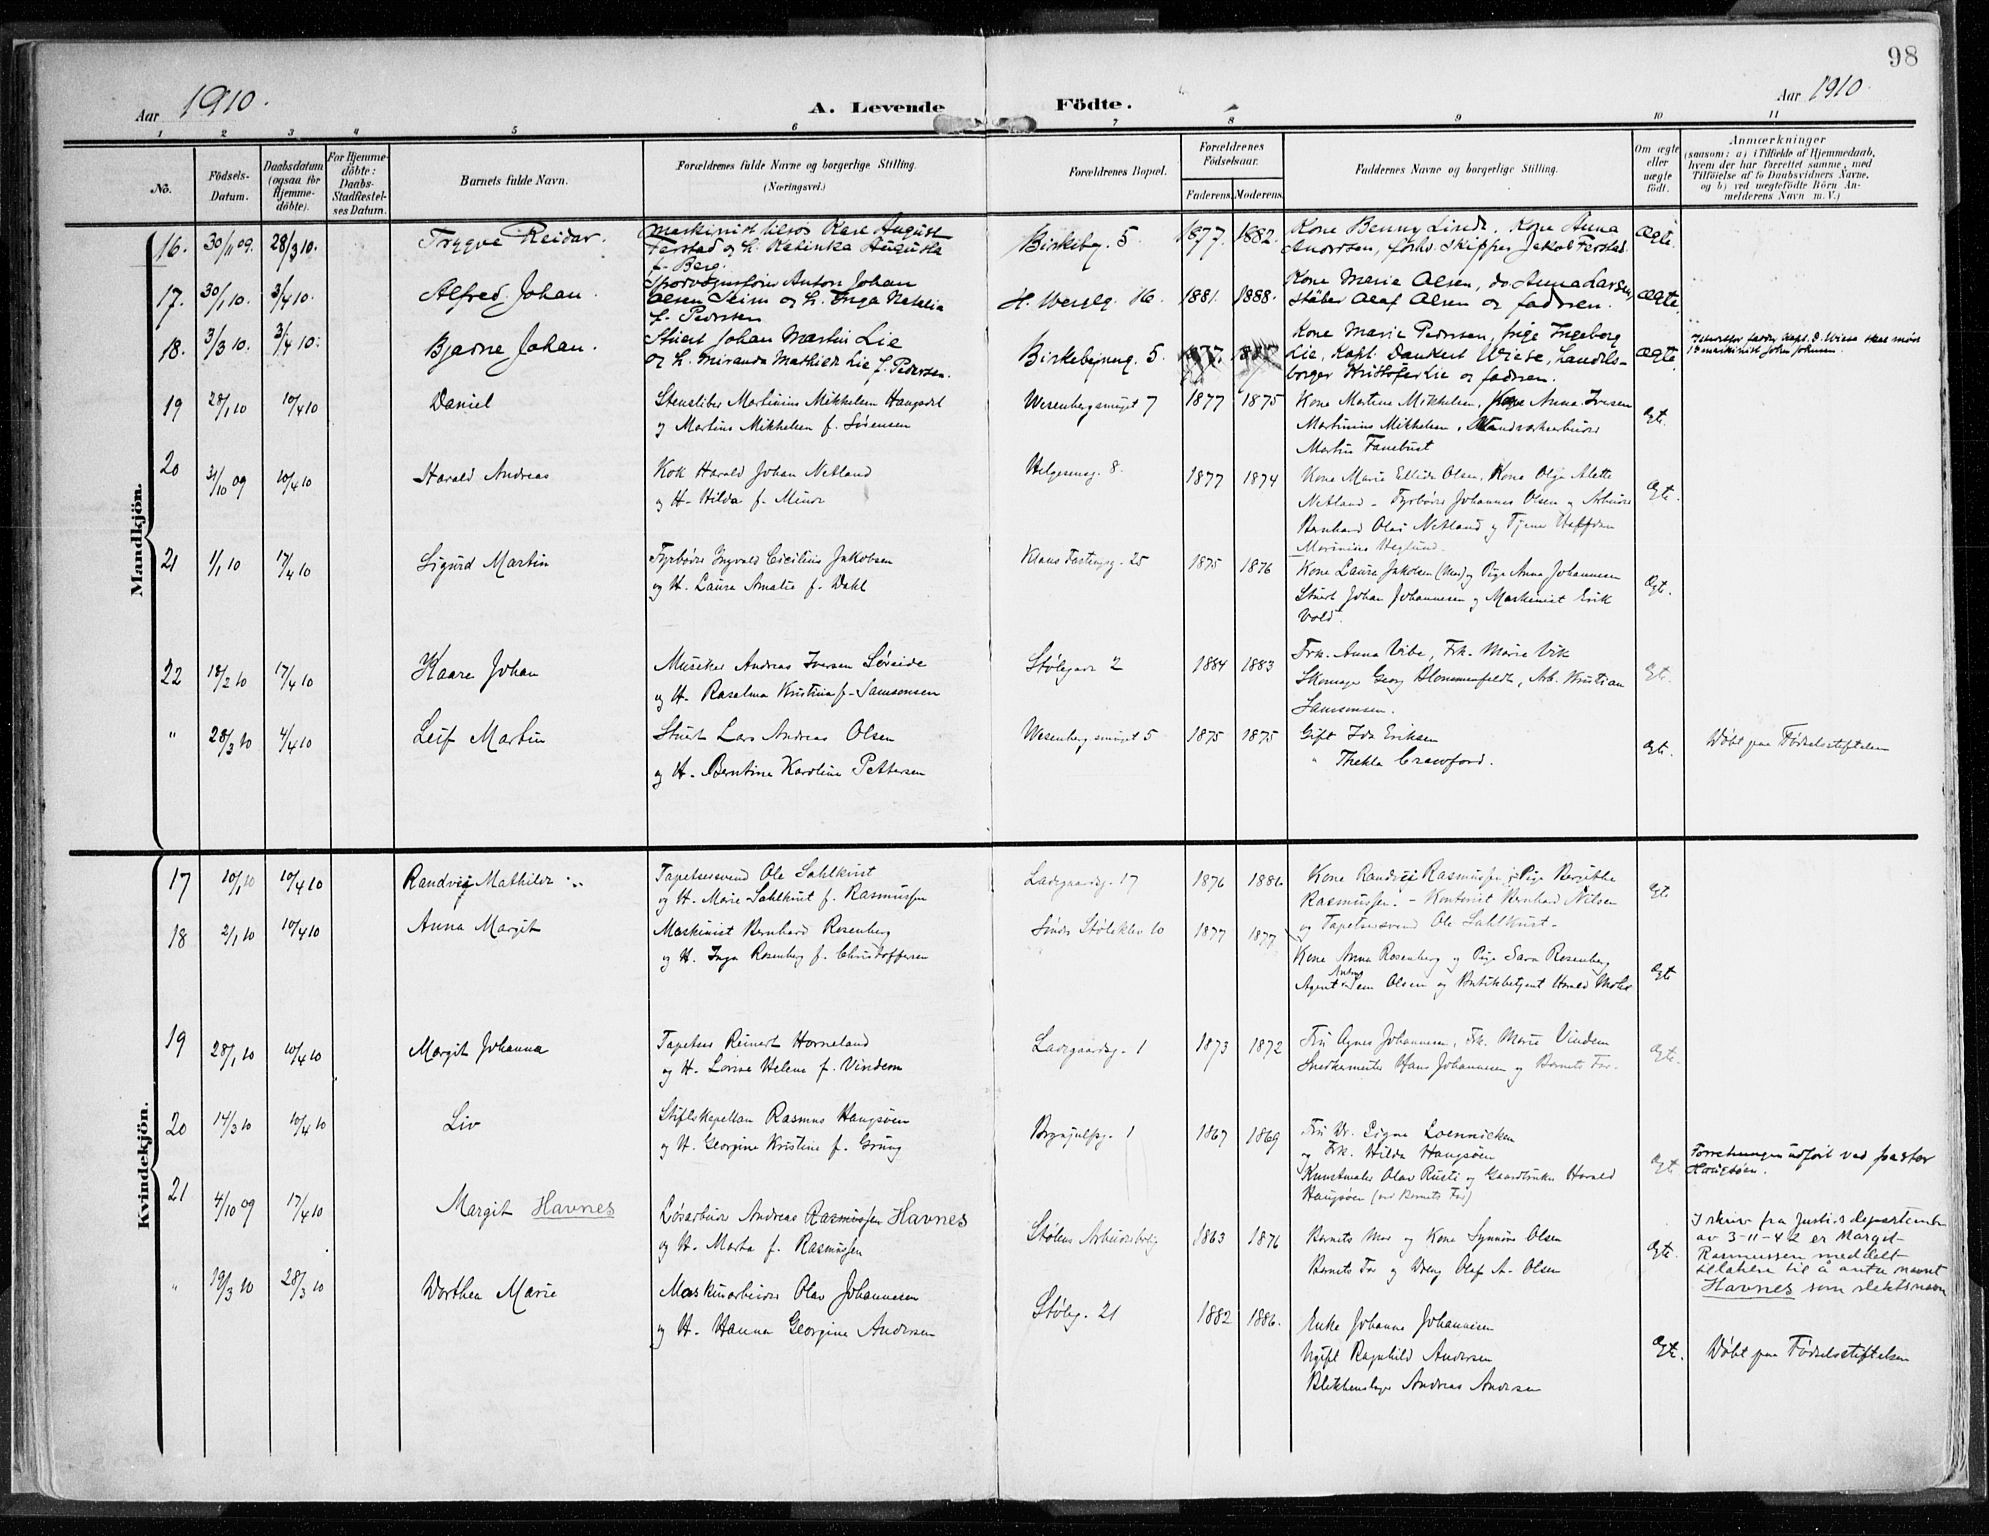 98
Aar 1910. A. Levende Födte. Aar 1910.
1 2 3 4 5 6 7 8 9 10 11
No. Födsels-Datum. Daabsdatum (ogsaa for Hjemme-döbte). For Hjemme-döbte: Daabs-Stadfæstel-ses Datum. Barnets fulde Navn. Forældrenes fulde Navne og borgerlige Stilling. (Næringsvei.) Forældrenes Bopæl. Forældrenes Födselsaar. Faderens. Moderens. Faddernes Navne og borgerlige Stilling. Om ægte eller uægte födt. Anmærkninger
(saasom: a) i Tilfælde af Hjemmedaab,
hvem der har forrettet samme, med
Tilföielse af to Daabsvidners Navne,
og b) ved uægtefödte Börn An-
melderens Navn m. V.)
Mandkjön.
16. 30/11 09. 28/3 10. Trygve Reidar. Karl August
Ferstad og H. Katinka Augusta
f. Berg.
Birkebeg. 5. 1877. 1882. Kone Benny Linde, Kone Anna
Andersen, forhv. Skipper Jakob Ferstad.
Ægte.
17. 30/1 10. 3/4 10. Alfred Johan. Anton Johan
Olsen Seim og H. Inga Natalia
f. Pedersen
H. Werslg. 16. 1881. 1888. Kone Marie Olsen, do. Anna Larsen,
Støber Olaf Olsen og faderen.
Ægte.
18. 3/3 10. 3/4 10. Bjarne Johan. Stuert Johan Martin Lie
og H. Miranda Mathilde Lie f. Pedersen.
Birkebeinerg. 5 1877. Kone Marie Pedersen, pige Ingeborg
Lie, Kapt. Dankert Wiese, Handels-
borger Kristofer Lie og faderen.
Ægte.
Istedetfor fadder Kapt. D. Wiese skal
1ste maskinist John Johnsen.
19 28/1 10 10/4 10 Daniel Martinius Mikkelsen Haugsdal
og Martine Mikkelsen f. Sørensen
Wesenbergsmuget 7 1877 1875 Kone Martine Mikkelsen, Pige Anna Iversen
Martinius Mikkelsen,
Martin Fanebust
Ægte.
20 31/10 09 10/4 10 Harald Andreas Kok Harald Johan Netland
og H. Hilda f. Minor
Helgesensg. 8. 1877 1874 Kone Marie Ellida Olsen, Kone Olga Alette
Netland - Fyrbøder Johannes Olsen og Arbeider
Bernhard Olai Netland og
Ægte.
21 1/1 10 17/4 10 Sigurd Martin Fyrbøder Ingvald Cicilius Jakobsen
og H. Laura Amalie f. Dahl
Klaus Fastingsg. 25 1875 1876 Kone Laura Jakobsen (Mor) og Pige Anna Johannesen
Stuert Johan Johannesen og Maskinist Erik
Vold.
Ægte.
22 18/2 10 17/4 10 Kaare Johan Musiker Andreas Iversen Sørside
og H. Raselma Kristina f. Samsonsen
Stølegade 2 1884 1883 Frk. Anna Vibe, Frk. Marie Vik
Skomager Georg Blommenfeldt, Arb. Kristian
Samsonsen.
Ægte.
" 28/3 10 4/4 10 Leif Martin Stuert Lars Andreas Olsen
og H. Berntine Karoline Pettersen
Wesenbergsmuget 5 1875 1875 Gift Ida Eriksen
" Thekla Crawford.
Ægte.
Døbt paa Fødselsstiftelsen
Kvindekjön.
17 10/1 10 10/4 10 Randvei Mathilde Tapetsersvend Ole Sahlkvist
og H. Marie Sahlkvist f. Rasmussen
Ladegaardsg. 17 1876 1886 Kone Randvei Rasmussen, Pige Bergitte
Rasmussen. - Kontorist Bernhard Nilsen
og Tapetsersvend Ole Sahlkvist.
Ægte
18 2/1 10 10/4 10 Anna Margit Maskinist Bernhard Rosenberg
og H. Inga Rosenberg f. Christoffersen
Søndre Støleklev 10 1877 1877 Kone Anna Rosenberg og Pige Sara Rosenberg
Agent Olsen og Butikbetjent Harald Mohr
Ægte
19 28/1 10 10/4 10 Margit Johanna Tapetser Reinert Horneland
og H. Lovise Helene f. Vindem
Ladegaardsg. 1 1873 1872 Fru Agnes Johannesen, Frk. Marie Vindem
Snedkermester Hans Johannesen og Barnets Far.
Ægte.
20 14/3 10 10/4 10 Liv Stiftskapellan Rasmus Haugsøen
og H. Georgine Kristine f. Grung
Brynjulfsg. 1 1867 1869 Fru Dr. Signe Loennicken
og Frk. Hilda Haugsøen
Kunstmaler Olav Rusti og Gaardbruker Harald
Haugsøen (ved Barnets Far)
Ægte
Forretningen utført ved pastor
Haugsøen.
21 4/10 09 17/4 10 Margit Havnes Løsarbeider Andreas Rasmussen Havnes
og H. Marta f. Rasmussen
Stølens Arbeiderbolig 1863 1876 Barnets Mor og Kone Synnøve Olsen
Barnets Far og Dreng Olaf A. Olsen
Ægte.
I skriv fra Justisdepartementet
av 3-11-42 er Margit
Rasmussen meddelt
tillatelse til å anta navnet
Havnes som slektsnavn
" 19/3 10 28/3 10 Dorthea Marie Maskinarbeider Olav Johannesen
og H. Hanna Georgine Andersen
Støleg. 21 1882 1886. Enke Johanne Johannesen
Ugift Ragnhild Andersen
Blikkenslager Andreas Andersen
Ægte.
Døbt paa Fødselsstiftelsen